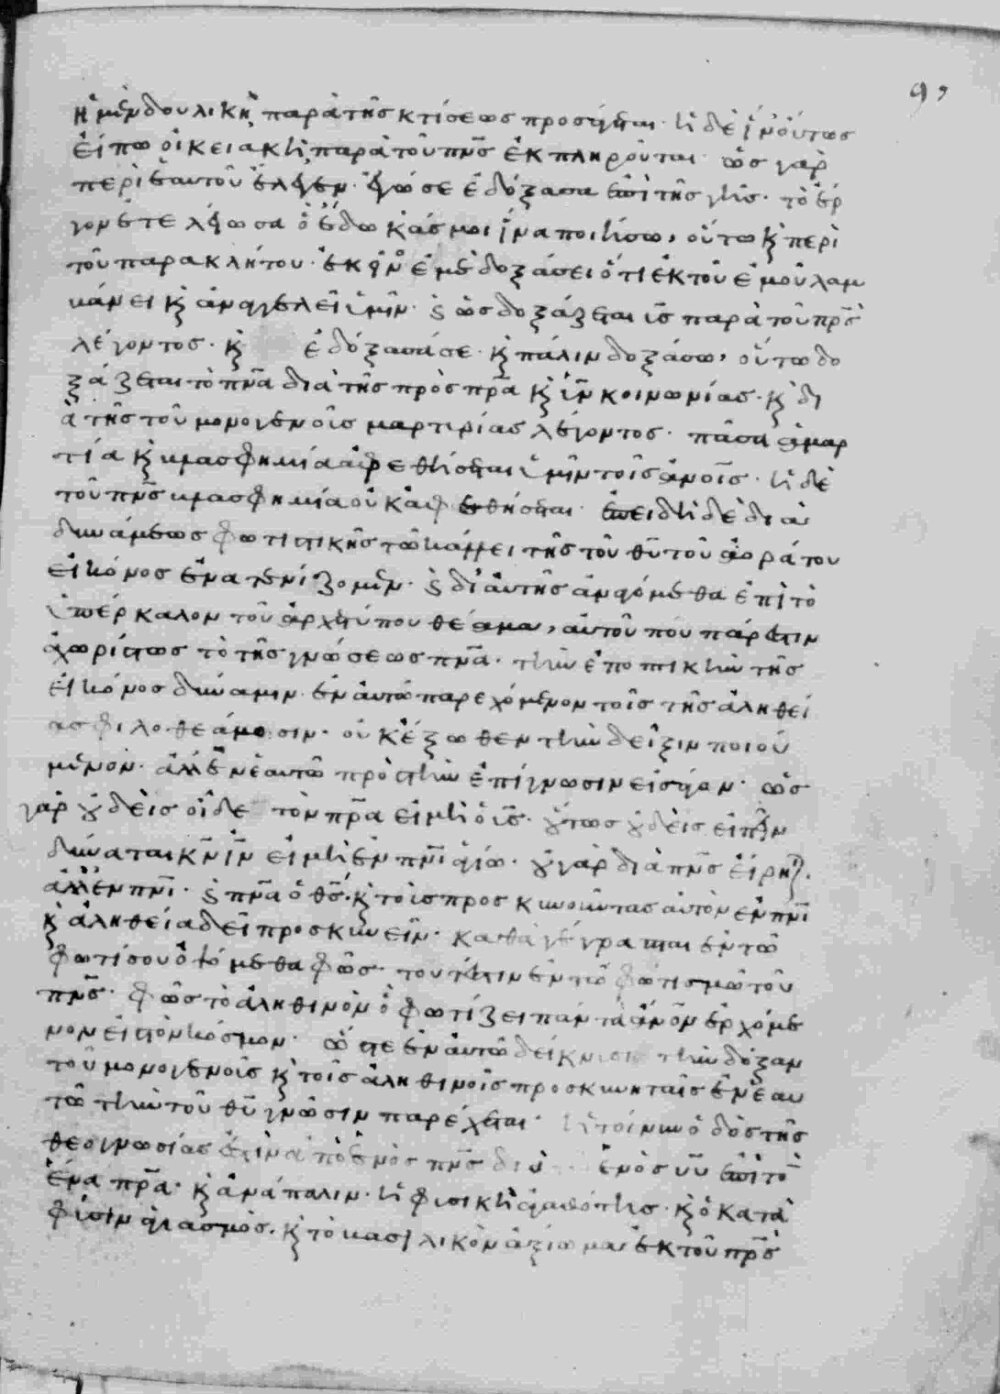 ἡ μὲν δουλικὴ παρὰ τῆς κτίσεως προσάγεται· ἡ δὲ ἵν' οὕτως
εἴπω οἰκειακὴ παρὰ τοῦ πνς ἐκπληροῦται· ὡς γὰρ
περὶ ἑαυτοῦ ἔλεγεν· ἐγώ σε ἐδόξασα ἐπὶ τῆς γῆς· τὸ ἔρ
γον ἐτελείωσα ὃ ἔδωκάς μοι ἵνα ποιήσω, οὕτω κ περὶ
τοῦ παρακλήτου· ἐκεῖνος ἐμὲ δοξάσει ὅτι ἐκ τοῦ ἐμοῦ λαμ
βάνει κ ἀναγγελεῖ ὑμῖν· κ ὡς δοξάζεται υς παρὰ τοῦ πρς
λέγοντος· κ ἐδόξασά σε· κ πάλιν δοξάσω, οὕτω δο
ξάζεται τὸ πνα διὰ τῆς πρὸς πρα κ υν κοινωνίας· κ δι
ὰ τῆς τοῦ μονογενοῦς μαρτυρίας λέγοντος· πᾶσα ἁμαρ
τία κ βλασφημία ἀφεθήσεται ὑμῖν τοῖς ἀνοις· ἡ δὲ
τοῦ πνς βλασφημία οὐκ ἀφεθήσεται· ἐπειδὴ δὲ διὰ
δυνάμεως φωτιστικῆς τῶ κάλλει τῆς τοῦ θυ τοῦ ἀοράτου
εἰκόνος ἐνατενίζομεν· κ δι' αὐτῆς ἀναγόμεθα ἐπὶ τὸ
ὑπέρκαλον τοῦ ἀρχετύπου θέαμα, αὐτοῦ που πάρεστιν
ἀχωρίστως τὸ τῆς γνώσεως πνα· τὴν ἐποπτικὴν τῆς
εἰκόνος δύναμιν ἐν αὐτῶ παρεχόμενον τοῖς τῆς ἀληθεί
ας φιλοθεάμοσιν· οὐκ ἔξωθεν τὴν δεῖξιν ποιού
μενον· ἀλλ' ἐν ἑαυτῶ πρὸς τὴν ἐπίγνωσιν εἰσάγον· ὡς
γὰρ οὐδεὶς οἶδε τὸν πρα εἰ μὴ ὁ υς· οὕτως οὐδεὶς εἰπεῖν
δύναται κν ιν εἰ μὴ ἐν πνι ἁγίω· οὐ γὰρ διὰ πνς εἴρηται·
ἀλλ' ἐν πνι· κ πνα ὁ θς· κ τοὺς προσκυνοῦντας αὐτὸν ἐν πνι
κ ἀληθεία δεῖ προσκυνεῖν· καθὰ γέγραπται ἐν τῶ
φωτί σου ὀψόμεθα φῶς· τουτέστιν ἐν τῶ φωτισμῶ τοῦ
πνς· φῶς τὸ ἀληθινὸν ὃ φωτίζει πάντα ἀνον ἐρχόμε
νον εἰς τὸν κόσμον· ὥστε ἐν αὐτῶ δείκνυσι τὴν δόξαν
τοῦ μονογενοῦς κ τοῖς ἀληθινοῖς προσκυνηταῖς ἐν ἑαυ
τῶ τὴν τοῦ θυ γνῶσιν παρέχεται· ἡ τοίνυν ὁδὸς τῆς
θεογνωσίας ἐστὶν ἀπὸ ἑνὸς πνς διὰ ἑνὸς υυ ἐπὶ τὸν
ἕνα πρα· κ ἀνάπαλιν· ἡ φυσικὴ ἀγαθότης· κ ὁ κατὰ
φύσιν ἁγιασμός· κ τὸ βασιλικὸν ἀξίωμα ἐκ τοῦ πρς